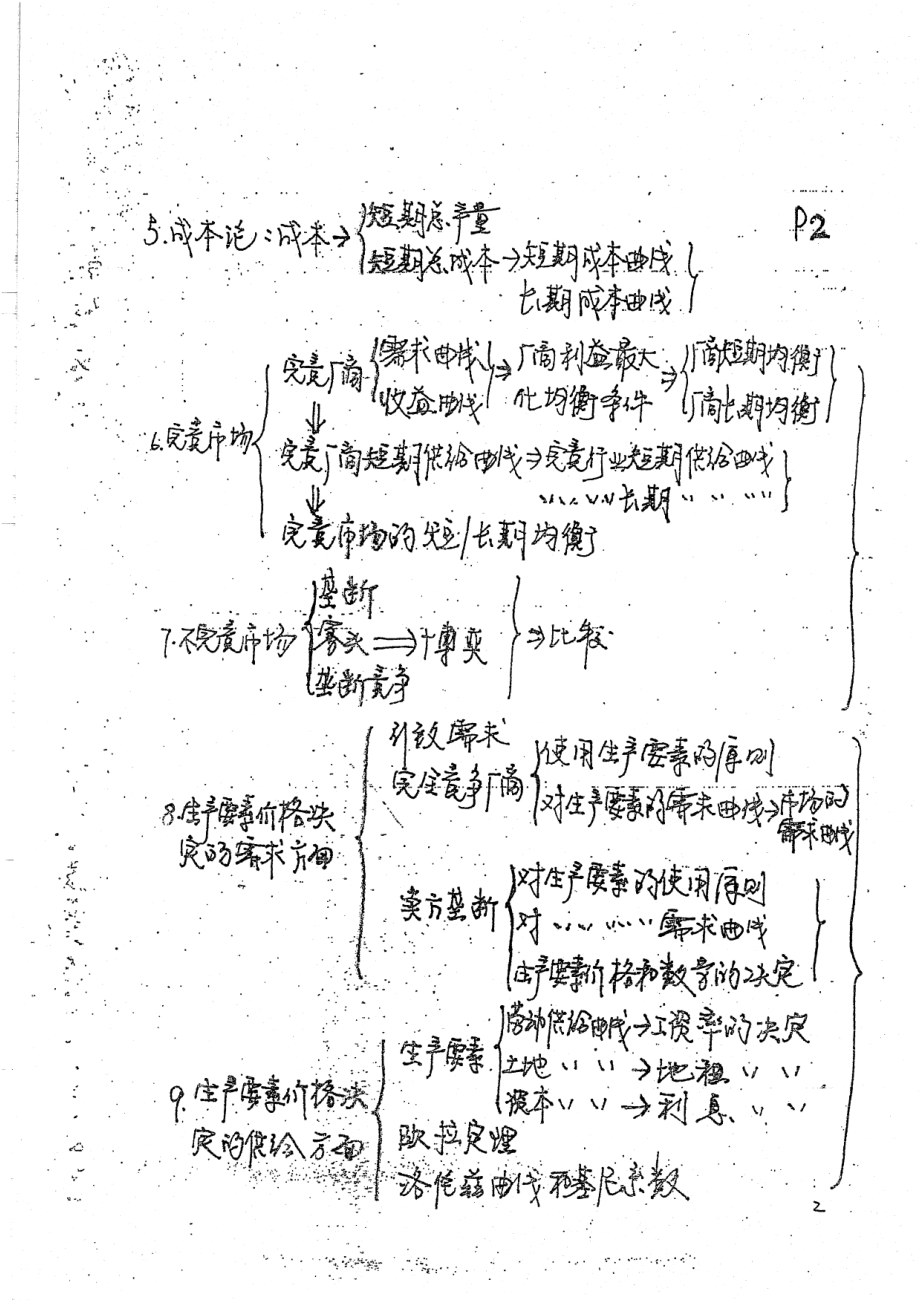 P2
5.成本论:成本→
短期总产量
短期总成本→短期成本曲线
长期成本曲线
6.完竞市场
完竞厂商
需求曲线
收益曲线
⇒厂商利益最大
化均衡条件
⇒厂商短期均衡
厂商长期均衡
⇓
完竞厂商短期供给曲线⇒完竞行业短期供给曲线
〃〃〃〃长期〃〃〃
⇓
完竞市场的短/长期均衡
7.不完竞市场
垄断
寡头⇒博奕
垄断竞争
⇒比较
8.生产要素价格决
定的需求方面
引致需求
完全竞争厂商
使用生产要素的原则
对生产要素的需求曲线→市场的
需求曲线
卖方垄断
对生产要素的使用原则
对〃〃〃〃需求曲线
生产要素价格和数量的决定
9.生产要素价格决
定的供给方面
生产要素
劳动供给曲线→工资率的决定
土地〃〃→地租〃〃
资本〃〃→利息〃〃
欧拉定理
洛伦兹曲线和基尼系数
2